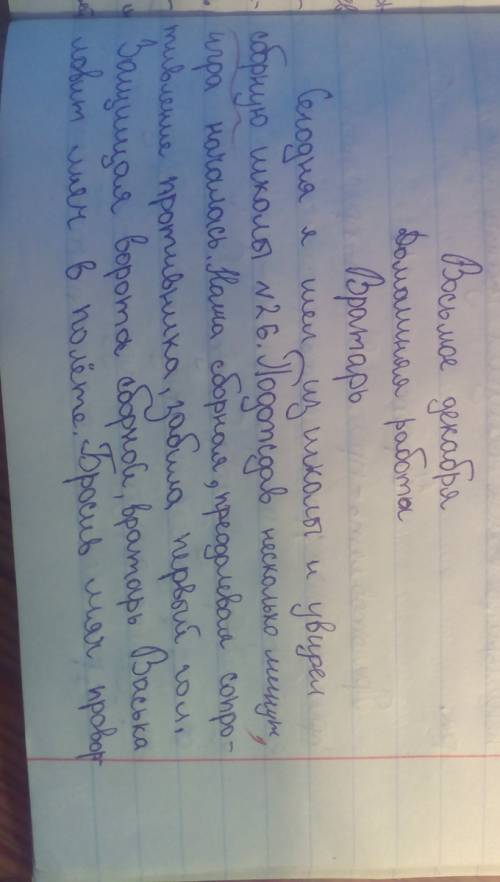 Восьмое декабря
Домашняя работа
Вратарь
Сегодня я шел из школы и увидел
сборную школы №26. Подождав несколько минут,
игра началась. Наша сборная, преодолевая сопро-
тивление противника, забила первый гол.
Защищая ворота сборной, вратарь Васька
ловит мяч в полёте. Бросив мяч провор